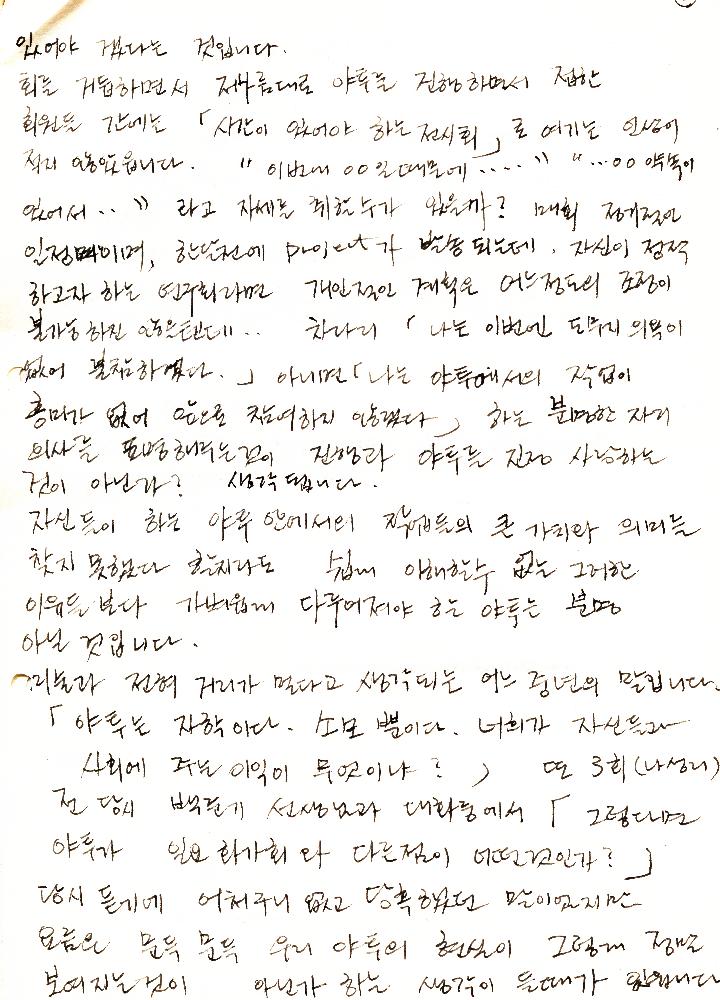 있어야 겠다는 것입니다.
회를 거듭하면서 제나름대로 야투를 진행하면서 접한
회원들 간에는 「시간이 있어야 하는 전시회」로 여기는 인상이
적지 않았읍니다. "이번에 00일때문에 ....." "...00 약속이
있어서 .." 라고 자세를 취할수가 있을까? 매회 정기적인
일정이며, 한달전에 project가 발송되는데. 자신이 정작
하고자 하는 연구회라면 개인적인 계획은 어느정도의 조정이
불가능하진 않을텐데.. 차라리 「나는 이번엔 도무지 의욕이
없어 불참하겠다.」 아니면 「나는 야투에서의 작업이
흥미가 없어 앞으로 참여하지 않겠다」 하는 분명한 자리
의사를 표명해주는것이 진행과 야투를 진정 사랑하는
것이 아닌가? 생각됩니다.
자신들이 하는 야투안에서의 작업들의 큰 가치와 의미를
찾지 못했다 할지라도 쉽게 이해할수 없는 그러한
이유들보다 가벼웁게 다루어져야 하는 야투는 분명
아닐 것입니다.
우리들과 전혀 거리가 멀다고 생각되는 어느 중년의 말입니다.
「야투는 자학이다. 소모 뿐이다. 너희가 자신들과
사회에 주는 이익이 무엇이냐?」 또 3회(나성리)
전 당시 백준기 선생님과 대화중에서 「그렇다면
야투가 일요화가회와 다른점이 어떤것인가?」
당시 듣기에 어처구니 없고 당혹했던 말이었지만
요즘은 문득 문득 우리 야투의 현실이 그렇게 정말
보여지는것이 아닌가 하는 생각이 들때가 많습니다